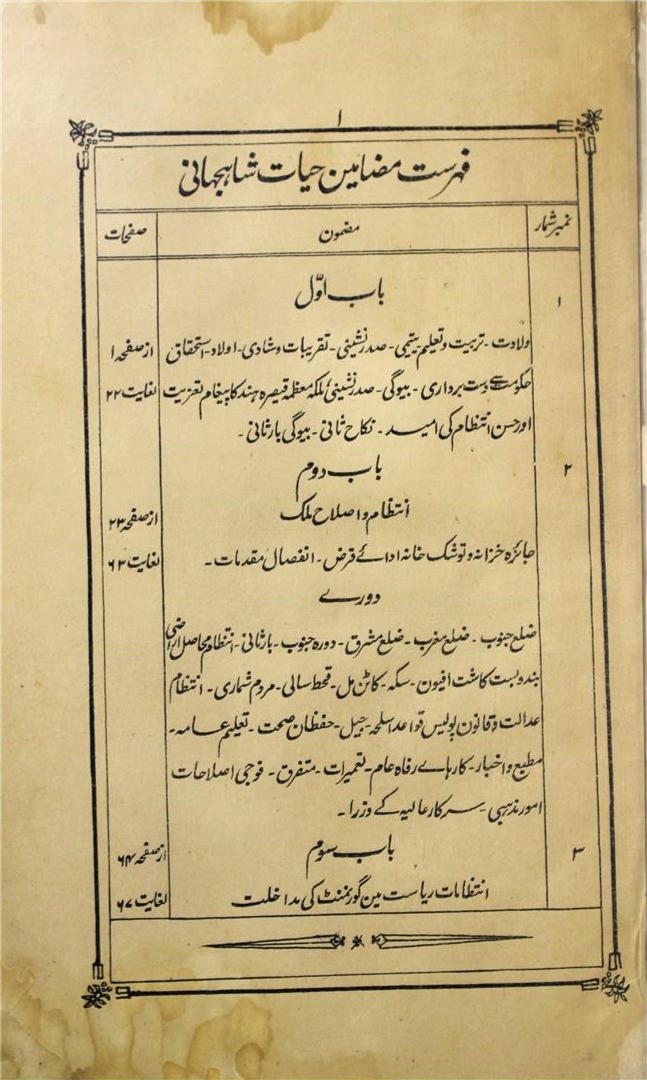 ۱
فہرست مضامین حیات شاہجہانی
نمبر شمار مضمون صفحات
۱ باب اوّل
ولادت - تربیت و تعلیم یتیمی - صدر نشینی - تقریبات و شادی - اولاد - استحقاق از صفحہ ۱
حکومت سے دست برداری - بیوگی - صدر نشینی، ملکہ معظمہ قیصرہ ہند کا پیغام تعزیت لغایت ۲۲
اور حسن انتظام کی امید - نکاح ثانی - بیوگی بار ثانی -
۲ باب دوم
انتظام و اصلاح ملک از صفحہ ۲۳
جائزہ خزانہ و توشک خانہ ادائے قرض - انفصال مقدمات - لغایت ۶۳
دورے
ضلع جنوب - ضلع مغرب - ضلع مشرق - دورہ جنوب - بار ثانی - انتظام محاصل اراضی
بندوبست کاشت افیون - سکہ - کاٹن مل - قحط سالی - مردم شماری - انتظام
عدالت و قانون پولیس قواعد اسلحہ - جیل - حفظان صحت - تعلیم عامہ -
مطبع و اخبار - کارہائے رفاہ عام - تعمیرات - متفرق - فوجی اصلاحات
امور مذہبی - سرکار عالیہ کے وزرا -
۳ باب سوم از صفحہ ۶۴
انتظامات ریاست مین گورنمنٹ کی مداخلت لغایت ۶۷